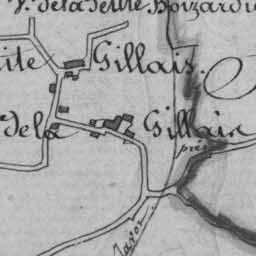 V. de la Petite Boizardi
ite Gillais.
de la Gillais
prés